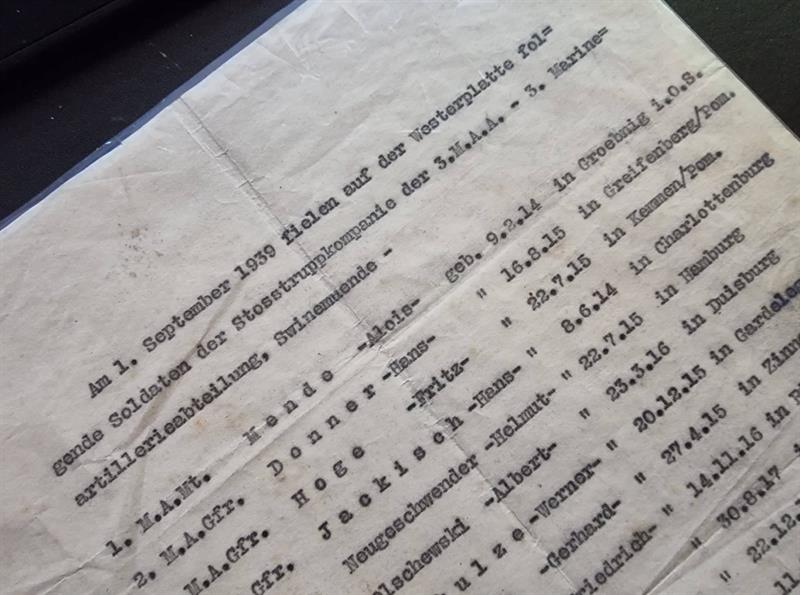 Am 1. September 1939 fielen auf der Westerplatte fol=
gende Soldaten der Stosstruppkompanie der 3.M.A.A. - 3. Marine=
artillerieabteilung, Swinemuende -
1. M.A.Mt. Mende -Alois- geb. 9.2.14 in Groebnig i.O.S.
2. M.A.Gfr. Donner -Hans- " 16.8.15 in Greifenberg/Pom.
M.A.Gfr. Hoge -Fritz- " 22.7.15 in Kemmen/Pom.
Gfr. Jackisch -Hans- " 8.6.14 in Charlottenburg
Neugeschwender -Helmut- " 22.7.15 in Hamburg
lschewski -Albert- " 23.3.16 in Duisburg
ulze -Werner- " 20.12.15 in Gardelen
-Gerhard- " 27.4.15 in Zinn
riedrich- " 14.11.16 in
" 30.8.17
" 22.12.
11.